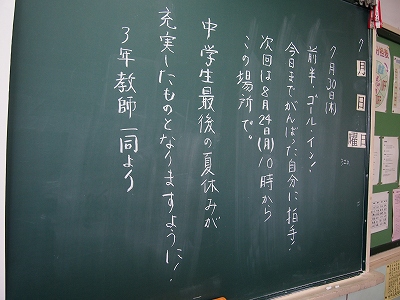 7月30日(木)
前半、ゴール・イン!
今日までがんばった自分に拍手!
次回は8月24日(月)10時から
この場所で。
中学生最後の夏休みが
充実したものとなりますように!
3年教師一同より
月
日
曜日